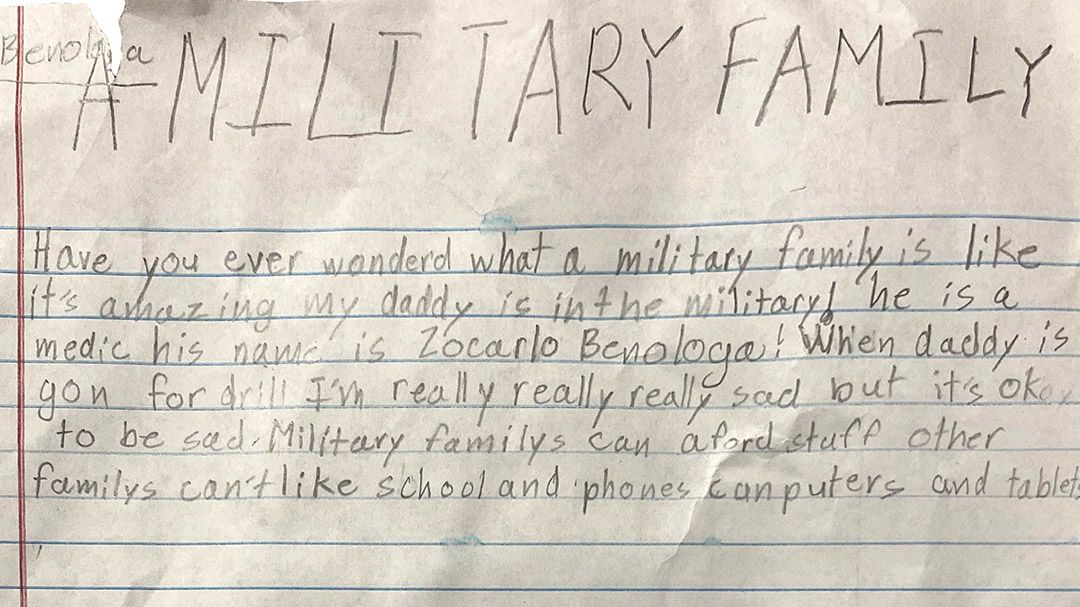 Benologa
A MILITARY FAMILY
Have you ever wonderd what a military family is like
it's amazing my daddy is in the military! he is a
medic his name is Zocarlo Benologa! When daddy is
gon for drill I'm really really really sad but it's okay
to be sad. Military familys can aford stuff other
familys can't like school and phones canputers and tablets